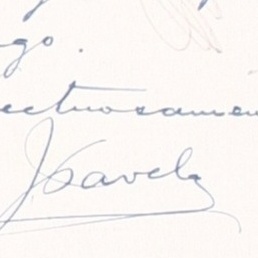 ago.
ectuosamen
JSavela